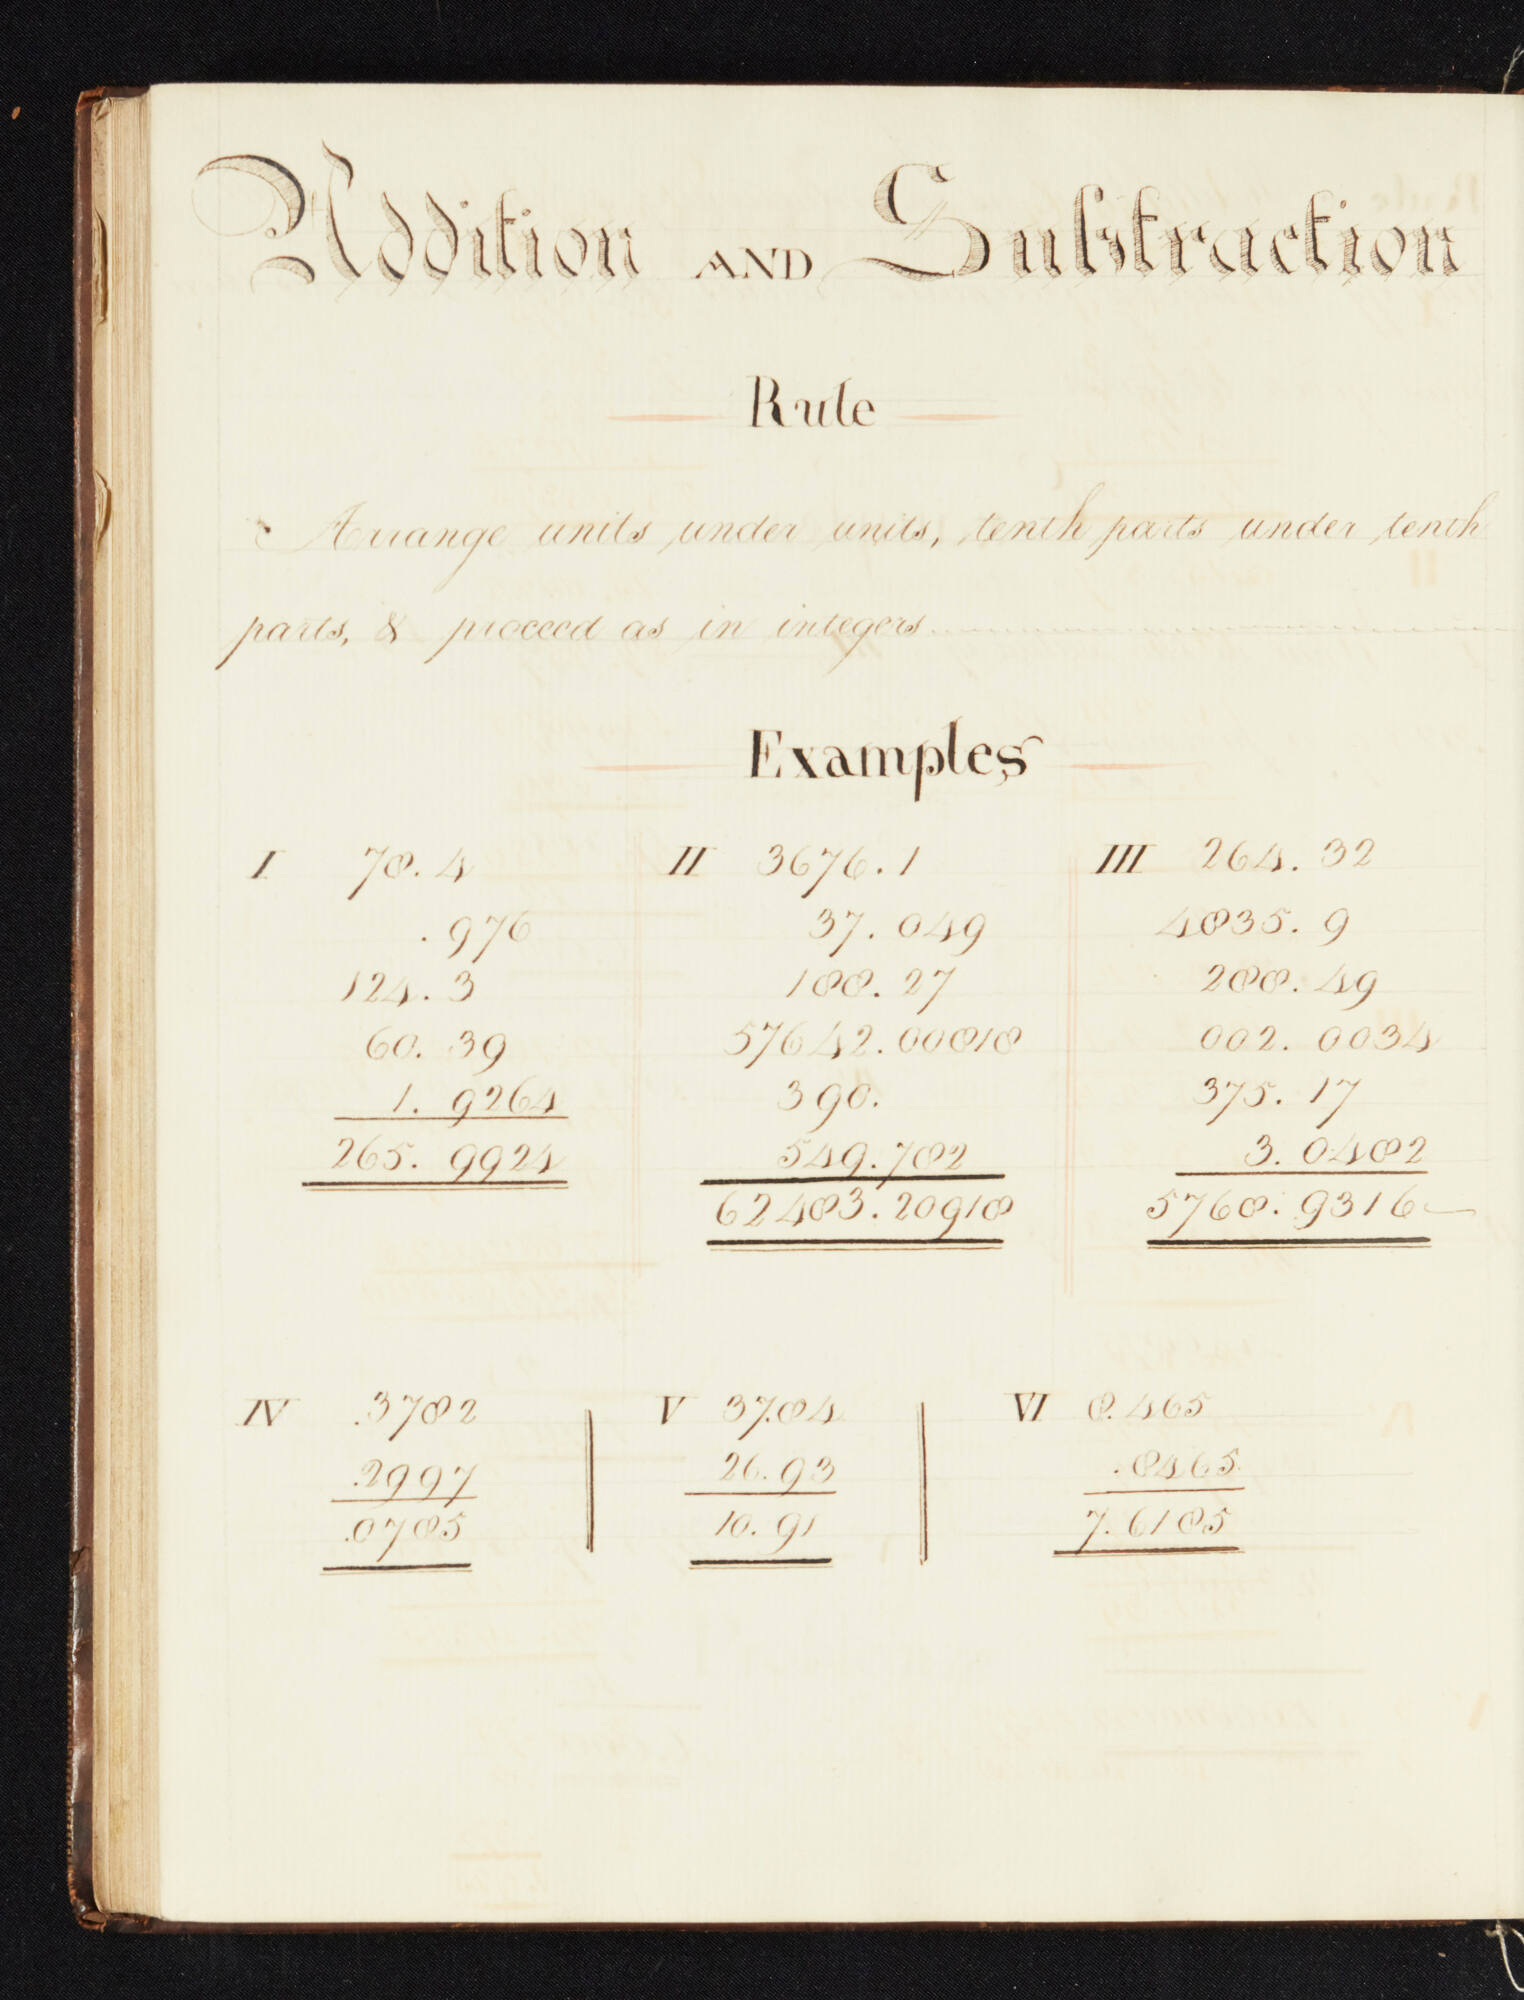 Addition AND Subtraction
Rule
Arrange units under units, tenth parts under tenth
parts, & proceed as in integers
Examples
I 78.4
.976
124.3
60.39
1.9264
265.9924
II 3676.1
37.049
188.27
57642.00818
390.
549.782
62483.20918
III 264.32
4835.9
288.49
002.0034
375.17
3.0482
5768.9316
IV .3782
.2997
.0785
V 37.84
26.93
10.91
VI 8.465
.8465
7.6185